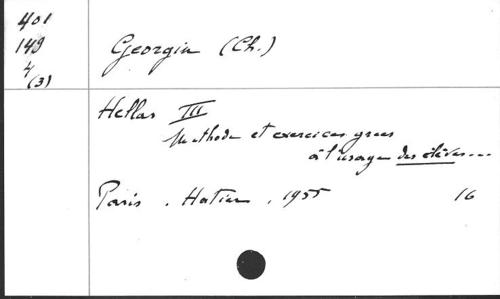 401
149
4
(3)
Georgin (Ch.)
Hellas III
Méthode et exercices grecs
à l'usage des élèves...
Paris . Hatier , 1955 16